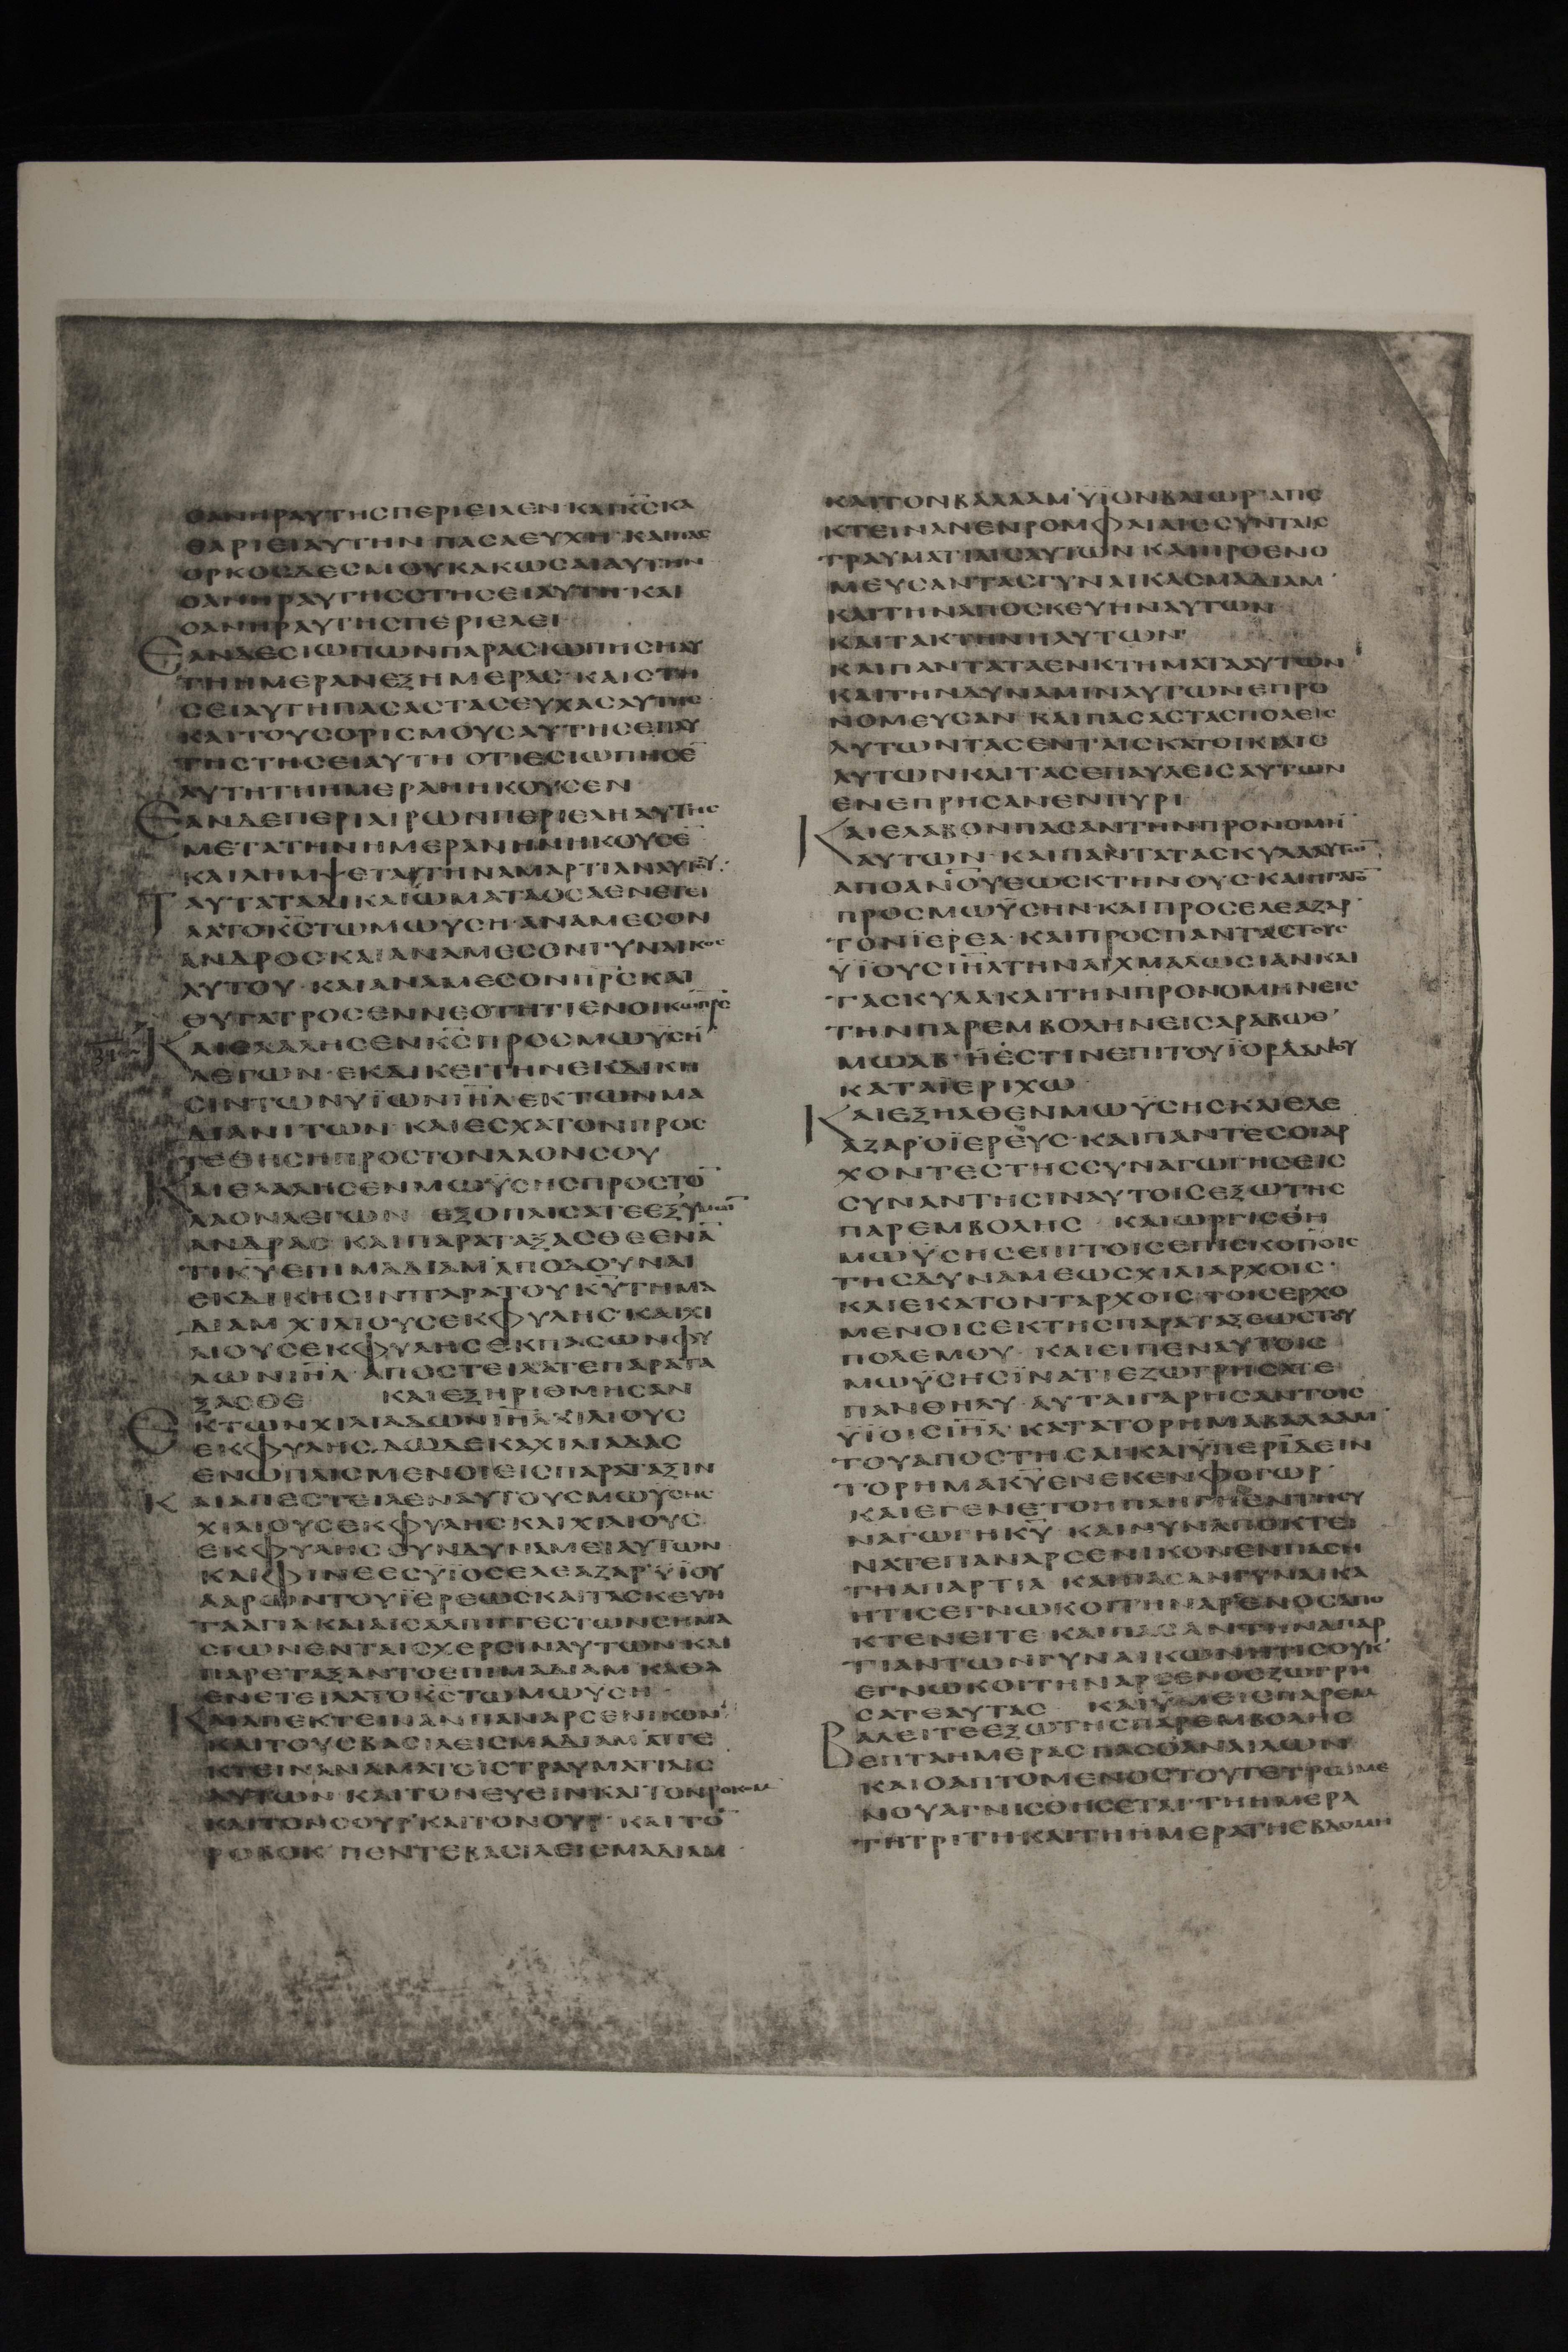 ΟΑΝΗΡΑΥΤΗΣΠΕΡΙΕΙΛΕΝ·ΚΑΙΚΣΚΑ
ΘΑΡΙΕΙΑΥΤΗΝ ΠΑΣΑΕΥΧΗ· ΚΑΙΠΑΣ
ΟΡΚΟΣΔΕΣΜΟΥΚΑΚΩΣΑΙΑΥΤΗΝ
ΟΑΝΗΡΑΥΤΗΣΣΤΗΣΕΙΑΥΤΗ·ΚΑΙ
ΟΑΝΗΡΑΥΤΗΣΠΕΡΙΕΛΕΙ
ΕΑΝΔΕΣΙΩΠΩΝΠΑΡΑΣΙΩΠΗΣΗΑΥ
ΤΗΗΜΕΡΑΝΕΞΗΜΕΡΑΣ·ΚΑΙΣΤΗ
ΣΕΙΑΥΤΗΠΑΣΑΣΤΑΣΕΥΧΑΣΑΥΤΗΣ
ΚΑΙΤΟΥΣΟΡΙΣΜΟΥΣΑΥΤΗΣΕΠΑΥ
ΤΗΣΤΗΣΕΙΑΥΤΗ ΟΤΙΕΣΙΩΠΗΣΕ̅
ΑΥΤΗΤΗΗΜΕΡΑΗΗΚΟΥΣΕΝ
ΕΑΝΔΕΠΕΡΙΑΙΡΩΝΠΕΡΙΕΛΗΑΥΤΗΣ
ΜΕΤΑΤΗΝΗΜΕΡΑΝΗΝΗΚΟΥΣΕ̅
ΚΑΙΛΗΜΨΕΤΑΙΤΗΝΑΜΑΡΤΙΑΝΑΥΤΟΥ·
ΤΑΥΤΑΤΑΔΙΚΑΙΩΜΑΤΑΟΣΑΕΝΕΤΕΙ
ΛΑΤΟΚΣΤΩΜΩΥΣΗ·ΑΝΑΜΕΣΟΝ
ΑΝΔΡΟΣ·ΚΑΙΑΝΑΜΕΣΟΝΓΥΝΑΙΚΟΣ
ΑΥΤΟΥ·ΚΑΙΑΝΑΜΕΣΟΝΠΡΣΚΑΙ
ΘΥΓΑΤΡΟΣΕΝΝΕΟΤΗΤΙΕΝΟΙΚΩΠΡΣ
ΚΑΙΕΛΑΛΗΣΕΝΚΣΠΡΟΣΜΩΫΣΗ̅
ΛΕΓΩΝ·ΕΚΔΙΚΕΙΤΗΝΕΚΔΙΚΗ
ΣΙΝΤΩΝΥΪΩΝΙΗΛΕΚΤΩΝΜΑ
ΔΙΑΝΙΤΩΝ·ΚΑΙΕΣΧΑΤΟΝΠΡΟΣ
ΤΕΘΗΣΗΠΡΟΣΤΟΝΛΑΟΝΣΟΥ
ΚΑΙΕΛΑΛΗΣΕΝΜΩΫΣΗΣΠΡΟΣΤΟ̅
ΛΑΟΝΛΕΓΩΝ ΕΞΟΠΛΙΣΑΤΕΕΞΫΜΩ̅
ΑΝΔΡΑΣ·ΚΑΙΠΑΡΑΤΑΞΑΣΘΕΕΝΑ̅
ΤΙΚΥΕΠΙΜΑΔΙΑΜ·ΑΠΟΔΟΥΝΑΙ
ΕΚΔΙΚΗΣΙΝΠΑΡΑΤΟΥΚΥΤΗΜΑ
ΔΙΑΜ ΧΙΛΙΟΥΣΕΚΦΥΛΗΣ·ΚΑΙΧΙ
ΛΙΟΥΣΕΚΦΥΛΗΣΕΚΠΑΣΩΝΦΥ
ΛΩΝΙΗΛ·ΑΠΟΣΤΕΙΛΑΤΕΠΑΡΑΤΑ
ΞΑΣΘΕ ΚΑΙΕΞΗΡΙΘΜΗΣΑΝ
ΕΚΤΩΝΧΙΛΙΑΔΩΝΙΗΛΧΙΛΙΟΥΣ
ΕΚΦΥΛΗΣ·ΔΩΔΕΚΑΧΙΛΙΑΔΑΣ
ΕΝΩΠΛΙΣΜΕΝΟΙΕΙΣΠΑΡΑΤΑΞΙΝ
ΚΑΙΑΠΕΣΤΕΙΛΕΝΑΥΤΟΥΣΜΩΥΣΗΣ
ΧΙΛΙΟΥΣΕΚΦΥΛΗΣΚΑΙΧΙΛΙΟΥΣ
ΕΚΦΥΛΗΣΣΥΝΔΥΝΑΜΕΙΑΥΤΩΝ
ΚΑΙΦΙΝΕΕΣΥΪΟΣΕΛΕΑΖΑΡ·ΥΪΟΥ
ΑΑΡΩΝΤΟΥΪΕΡΕΩΣΚΑΙΤΑΣΚΕΥΗ
ΤΑΑΓΙΑΚΑΙΑΙΣΑΛΠΙΓΓΕΣΤΩΝΣΗΜΑ
ΣΙΩΝΕΝΤΑΙΣΧΕΡΣΙΝΑΥΤΩΝ·ΚΑΙ
ΠΑΡΕΤΑΞΑΝΤΟΕΠΙΜΑΔΙΑΜ·ΚΑΘΑ
ΕΝΕΤΕΙΛΑΤΟΚΣΤΩΜΩΥΣΗ·
ΚΑΙΑΠΕΚΤΕΙΝΑΝΠΑΝΑΡΣΕΝΙΚΟΝ
ΚΑΙΤΟΥΣΒΑΣΙΛΕΙΣΜΑΔΙΑΜ·ΑΠΕ
ΚΤΕΙΝΑΝΑΜΑΤΟΙΣΤΡΑΥΜΑΤΙΑΙΣ
ΑΥΤΩΝ·ΚΑΙΤΟΝΕΥΕΙΝΚΑΙΤΟΝΡΟΚΟΜ
ΚΑΙΤΟΝΣΟΥΡ·ΚΑΙΤΟΝΟΥΡ·ΚΑΙΤΟ̅
ΡΟΒΟΚ·ΠΕΝΤΕΒΑΣΙΛΕΙΣΜΑΔΙΑΜ·
ΚΑΙΤΟΝΒΑΛΑΑΜ·ΥΪΟΝΒΑΙΩΡ·ΑΠΕ
ΚΤΕΙΝΑΝΕΝΡΟΜΦΑΙΑΙΣΥΝΤΑΙΣ
ΤΡΑΥΜΑΤΙΑΙΣΑΥΤΩΝ ΚΑΙΠΡΟΕΝΟ
ΜΕΥΣΑΝΤΑΣΓΥΝΑΙΚΑΣΜΑΔΙΑΜ·
ΚΑΙΤΗΝΑΠΟΣΚΕΥΗΝΑΥΤΩΝ
ΚΑΙΤΑΚΤΗΝΗΑΥΤΩΝ·
ΚΑΙΠΑΝΤΑΤΑΕΝΚΤΗΜΑΤΑΑΥΤΩΝ
ΚΑΙΤΗΝΔΥΝΑΜΙΝΑΥΤΩΝΕΠΡΟ
ΝΟΜΕΥΣΑΝ·ΚΑΙΠΑΣΑΣΤΑΣΠΟΛΕΙΣ
ΑΥΤΩΝΤΑΣΕΝΤΑΙΣΚΑΤΟΙΚΙΑΙΣ
ΑΥΤΩΝΚΑΙΤΑΣΕΠΑΥΛΕΙΣΑΥΤΩΝ
ΕΝΕΠΡΗΣΑΝΕΝΠΥΡΙ
ΚΑΙΕΛΑΒΟΝΠΑΣΑΝΤΗΝΠΡΟΝΟΜΗ̅
ΑΥΤΩΝ·ΚΑΙΠΑΝΤΑΤΑΣΚΥΛΑΑΥΤΩ̅
ΑΠΟΑΝΟΥΕΩΣΚΤΗΝΟΥΣ·ΚΑΙΗΓΑΓΟ̅
ΠΡΟΣΜΩΫΣΗΝ·ΚΑΙΠΡΟΣΕΛΕΑΖΑΡ·
ΤΟΝΪΕΡΕΑ·ΚΑΙΠΡΟΣΠΑΝΤΑΣΤΟΥΣ
ΥΪΟΥΣΙΗΛΤΗΝΑΙΧΜΑΛΩΣΙΑΝΚΑΙ
ΤΑΣΚΥΛΑΚΑΙΤΗΝΠΡΟΝΟΜΗΝΕΙΣ
ΤΗΝΠΑΡΕΜΒΟΛΗΝΕΙΣΑΡΑΒΩΘ·
ΜΩΑΒ·ΗΕΣΤΙΝΕΠΙΤΟΥΪΟΡΔΑΝΟΥ
ΚΑΤΑΪΕΡΙΧΩ
ΚΑΙΕΞΗΛΘΕΝΜΩΫΣΗΣΚΑΙΕΛΕ
ΑΖΑΡ·ΟΪΕΡΕΥΣ·ΚΑΙΠΑΝΤΕΣΟΙΑΡ
ΧΟΝΤΕΣΤΗΣΣΥΝΑΓΩΓΗΣΕΙΣ
ΣΥΝΑΝΤΗΣΙΝΑΥΤΟΙΣΕΞΩΤΗΣ
ΠΑΡΕΜΒΟΛΗΣ ΚΑΙΩΡΓΙΣΘΗ
ΜΩΫΣΗΣΕΠΙΤΟΙΣΕΠΙΣΚΟΠΟΙΣ
ΤΗΣΔΥΝΑΜΕΩΣΧΙΛΙΑΡΧΟΙΣ·
ΚΑΙΕΚΑΤΟΝΤΑΡΧΟΙΣ·ΤΟΙΣΕΡΧΟ
ΜΕΝΟΙΣΕΚΤΗΣΠΑΡΑΤΑΞΕΩΣΤΟΥ
ΠΟΛΕΜΟΥ·ΚΑΙΕΙΠΕΝΑΥΤΟΙΣ
ΜΩΥΣΗΣΪΝΑΤΙΕΖΩΓΡΗΣΑΤΕ
ΠΑΝΘΗΛΥ·ΑΥΤΑΙΓΑΡΗΣΑΝΤΟΙΣ
ΥΪΟΙΣΙΗΛ·ΚΑΤΑΤΟΡΗΜΑΒΑΛΑΑΜ·
ΤΟΥΑΠΟΣΤΗΣΑΙΚΑΙΫΠΕΡΙΔΕΙΝ
ΤΟΡΗΜΑΚΥΕΝΕΚΕΝΦΟΓΩΡ·
ΚΑΙΕΓΕΝΕΤΟΗΠΛΗΓΗΕΝΤΗΣΥ
ΝΑΓΩΓΗΚΥ·ΚΑΙΝΥΝΑΠΟΚΤΕΙ
ΝΑΤΕΠΑΝΑΡΣΕΝΙΚΟΝΕΝΠΑΣΗ
ΤΗΑΠΑΡΤΙΑ·ΚΑΙΠΑΣΑΝΓΥΝΑΙΚΑ
ΗΤΙΣΕΓΝΩΚΟΙΤΗΝΑΡΣΕΝΟΣΑΠΟ
ΚΤΕΝΕΙΤΕ·ΚΑΙΠΑΣΑΝΤΗΝΑΠΑΡ
ΤΙΑΝΤΩΝΓΥΝΑΙΚΩΝΗΤΙΣΟΥΚ
ΕΓΝΩΚΟΙΤΗΝΑΡΣΕΝΟΣΖΩΓΡΗ
ΣΑΤΕΑΥΤΑΣ ΚΑΙΫΜΕΙΣΠΑΡΕΜ
ΒΑΛΕΙΤΕΕΞΩΤΗΣΠΑΡΕΜΒΟΛΗΣ
ΕΠΤΑΗΜΕΡΑΣΠΑΣΟΑΝΑΙΛΩΝ
ΚΑΙΟΑΠΤΟΜΕΝΟΣΤΟΥΤΕΤΡΩΜΕ
ΝΟΥΑΓΝΙΣΘΗΣΕΤΑΙ·ΤΗΗΜΕΡΑ
ΤΗΤΡΙΤΗΚΑΙΤΗΗΜΕΡΑΤΗΕΒΔΟΜΗ